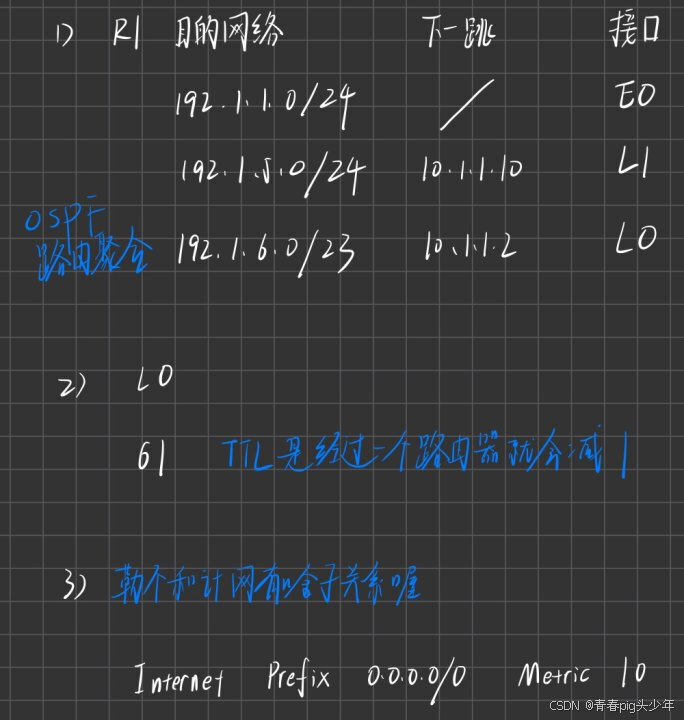 1) R1 目的网络 下一跳 接口
192.1.1.0/24 / E0
192.1.5.0/24 10.1.1.10 L1
OSPF
路由聚合 192.1.6.0/23 10.1.1.2 L0
2) L0
61 TTL是经过一个路由器就会减1
3) 勒个和计网有啥子关系喔
Internet Prefix 0.0.0.0/0 Metric 10
CSDN @青春pig头少年